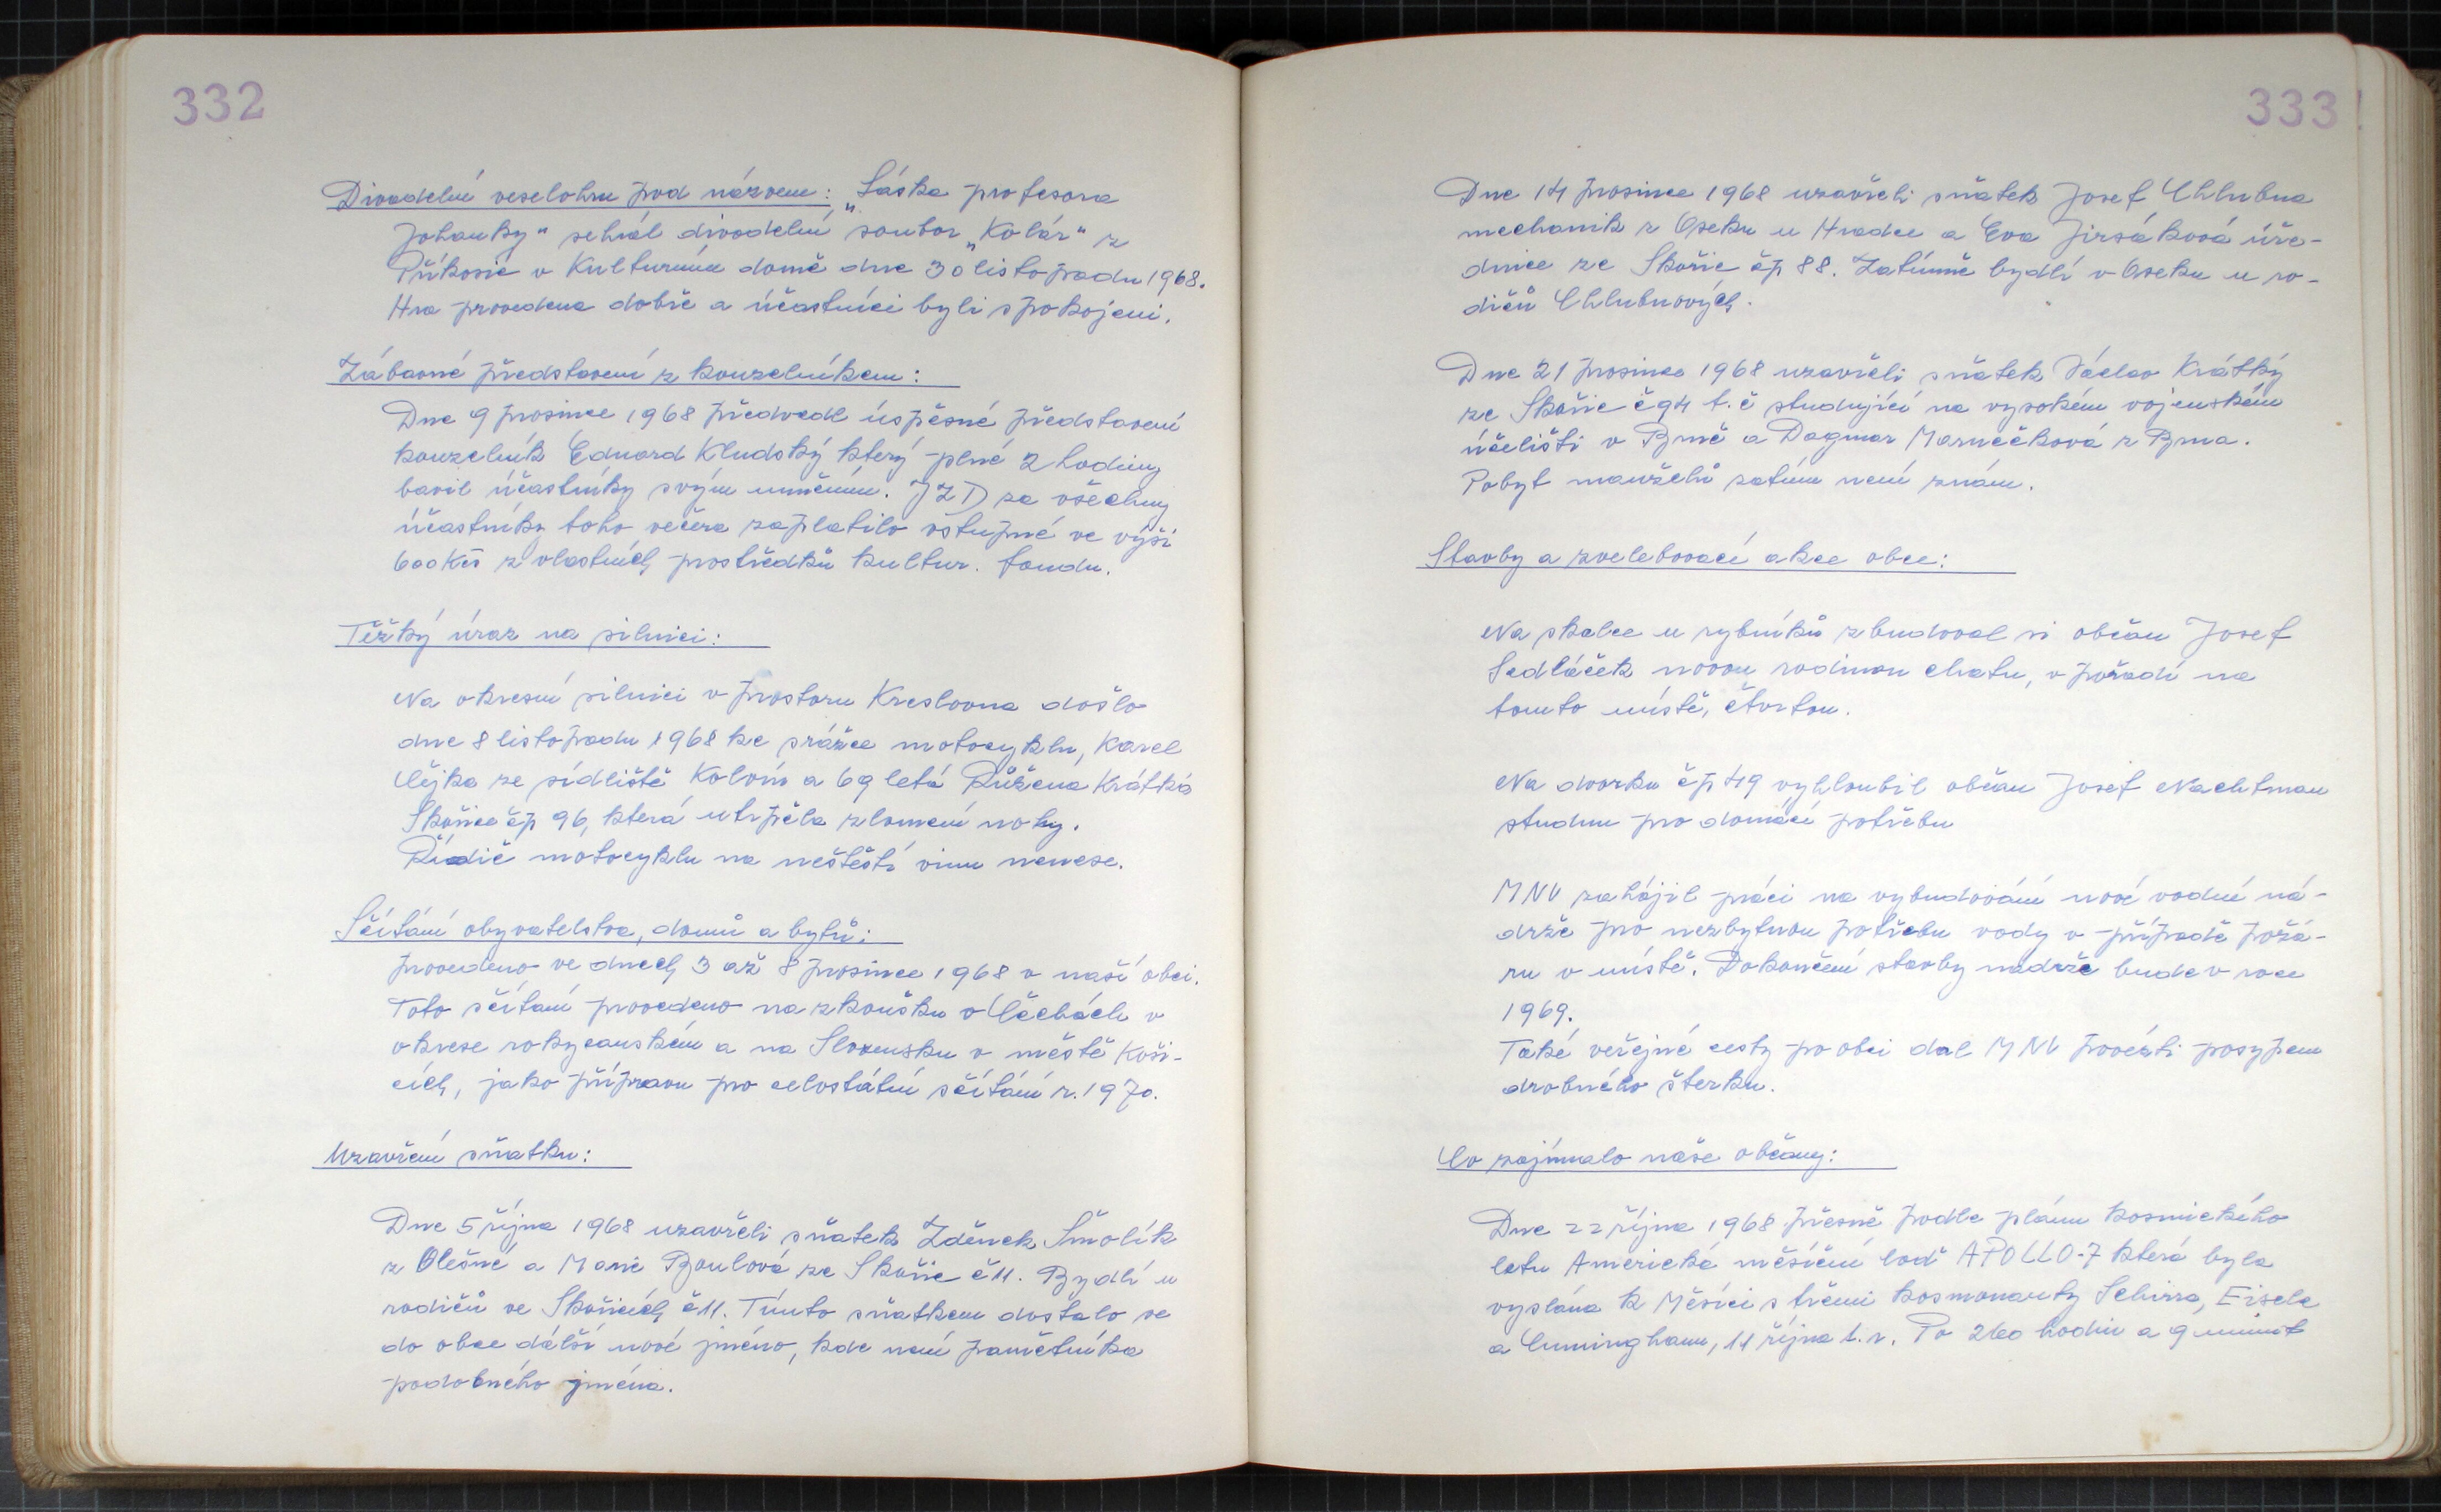 332
Divadelní veselohru pod názvem: „Láska profesora
Johanky" sehrál divadelní soubor „Kolár" z
Příkosic v Kulturním domě dne 30 listopadu 1968.
Hra provedena dobře a účastníci byli spokojeni.
Zábavné představení z kouzelníkem:
Dne 9 prosince 1968 předvedl úspěsné představení
kouzelník Eduard Kludský který plné 2 hodiny
bavil účastníky svým uměním. JZD za všechny
účastníky toho večera zaplatilo vstupné ve výši
600 Kčs z vlastních prostředků kultur. fondu.
Těžký úraz na silnici:
Na okresní silnici v prostoru Kreslovna došlo
dne 8 listopadu 1968 ke srážce motocyklu, Karel
Čejka ze sídliště Kolvín a 69 letá Růžena Krátká
Skořice čp 96, která utrpěla zlomení nohy.
Řídič motocyklu na neštěstí vinu nenese.
Sčítání obyvatelstva, domů a bytů:
provedeno ve dnech 3 až 8 prosince 1968 v naší obci.
Toto sčítaní provedeno na zkoušku v Čechách v
okrese rokycanském a na Slovensku v městě Koši-
cích, jako přípravu pro celostátní sčítání r. 1970.
Uzavření sňatku:
Dne 5 října 1968 uzavřeli sňatek Zděnek Šmolík
z Olešné a Marie Boulová ze Skořic č 11. Bydlí u
rodičů ve Skořicích č 11. Tímto sňatkem dostalo se
do obce dálší nové jméno, kde není pamětníka
podobného jména.
333
Dne 14 prosince 1968 uzavřeli sňatek Josef Chlubna
mechanik z Oseku u Hradce a Eva Jirsáková úře-
dnice ze Skořic čp 88. Zatímně bydlí v Oseku u ro-
dičů Chlubnových.
Dne 21 prosince 1968 uzavřeli sňatek Václav Krátký
ze Skořic č 94 t. č studující na vysokém vojenském
účelišti v Brně a Dagmar Marnečková z Brna.
Pobyt manželů zatím není znám.
Stavby a zvelebovací akce obce:
Na skalce u rybníků zbudoval si občan Josef
Sedláček novou rodinou chatu, v pořadí na
tomto místě, čtvrtou.
Na dvorku čp 49 vyhloubil občan Josef Nachtman
studnu pro domácí potřebu
MNV zahájil práci na vybudování nové vodní ná-
drže pro nezbytnou potřebu vody v případě požá-
ru v místě. Dokončení stavby nadrže bude v roce
1969.
Také veřejné cesty po obci dal MNV provésti posypem
drobného šterku.
Co zajímalo naše občany:
Dne 22 října 1968 přesně podle plánu kosmického
letu Americká měsíční loď APOLLO-7 která byla
vyslána k Měsíci s třemi kosmonauty Schirra, Eisele
a Cuningham, 11 října t. r. Po 260 hodin a 9 minut